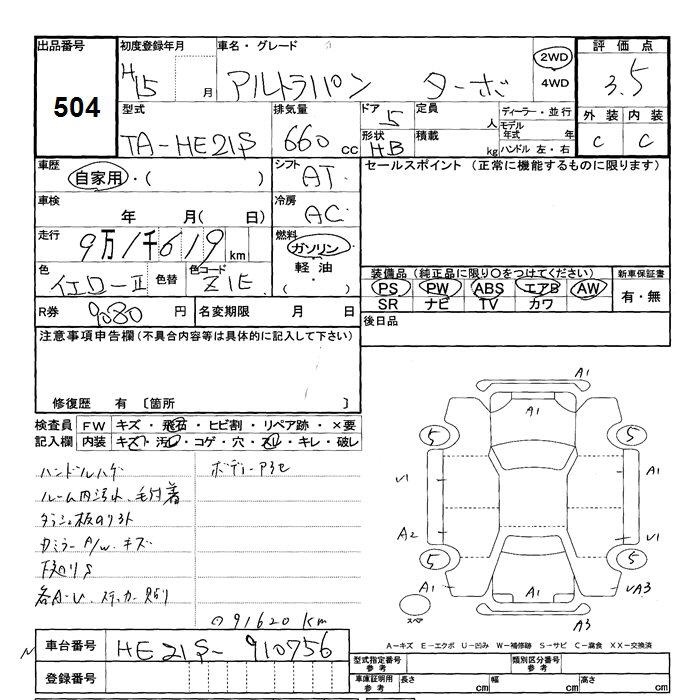 出品番号
504
初度登録年月
H15 月
車名・グレード
アルトラパン ターボ
2WD
4WD
評価点
3.5
外装 内装
C C
型式
TA-HE21S
排気量
660 cc
ドア 5
形状 HB
定員 人
積載 kg
ディーラー・並行
モデル年式 年
ハンドル 左・右
車歴
自家用・( )
シフト
AT
セールスポイント (正常に機能するものに限ります)
車検
年 月( 日)
冷房
AC
走行
9万1千619km
燃料
ガソリン
軽油・
( )
色
イエローII
色替
色コード
Z1E
装備品 (純正品に限り〇をつけてください)
PS PW ABS エアB AW
SR ナビ TV カワ
新車保証書
有・無
R券 9080 円
名変期限 月 日
後日品
注意事項申告欄(不具合内容等は具体的に記入して下さい)
修復歴 有 〔箇所 〕
検査員記入欄
FW キズ・飛石・ヒビ割・リペア跡・×要
内装 キズ・汚レ・コゲ・穴・スレ・キレ・破レ
ハンドルハゲ
ボディー
ルーム内汚れ、毛付着
ダッシュ板のリフト
ミラー A/w キズ
下廻りS
各A・U、ステッカー
91620 km
A1
A1
5 5
U1 A1
A2 U1
5 5
A1 A1 UA3
スペア
A3
A-キズ E-エクボ U-凹み W-補修跡 S-サビ C-腐食 XX-交換済
車台番号 HE21S-910756
登録番号
型式指定番号 参考
類別区分番号 参考
車庫証明用 参考
長さ cm
幅 cm
高さ cm